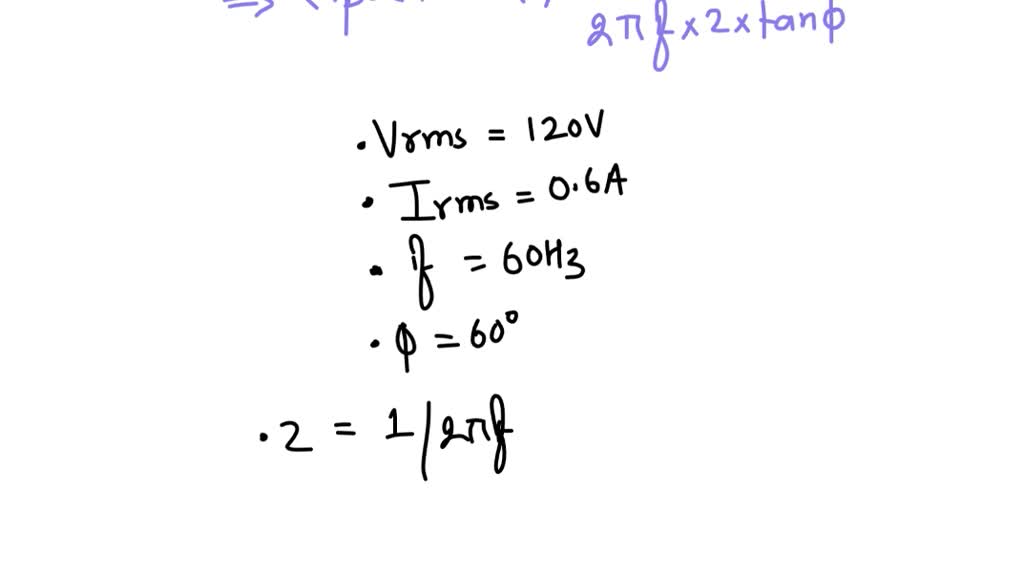 2πf×2×tanφ
· Vrms = 120V
· Irms = 0.6A
· f = 60Hz
· φ = 60°
· 2 = 1/2πf